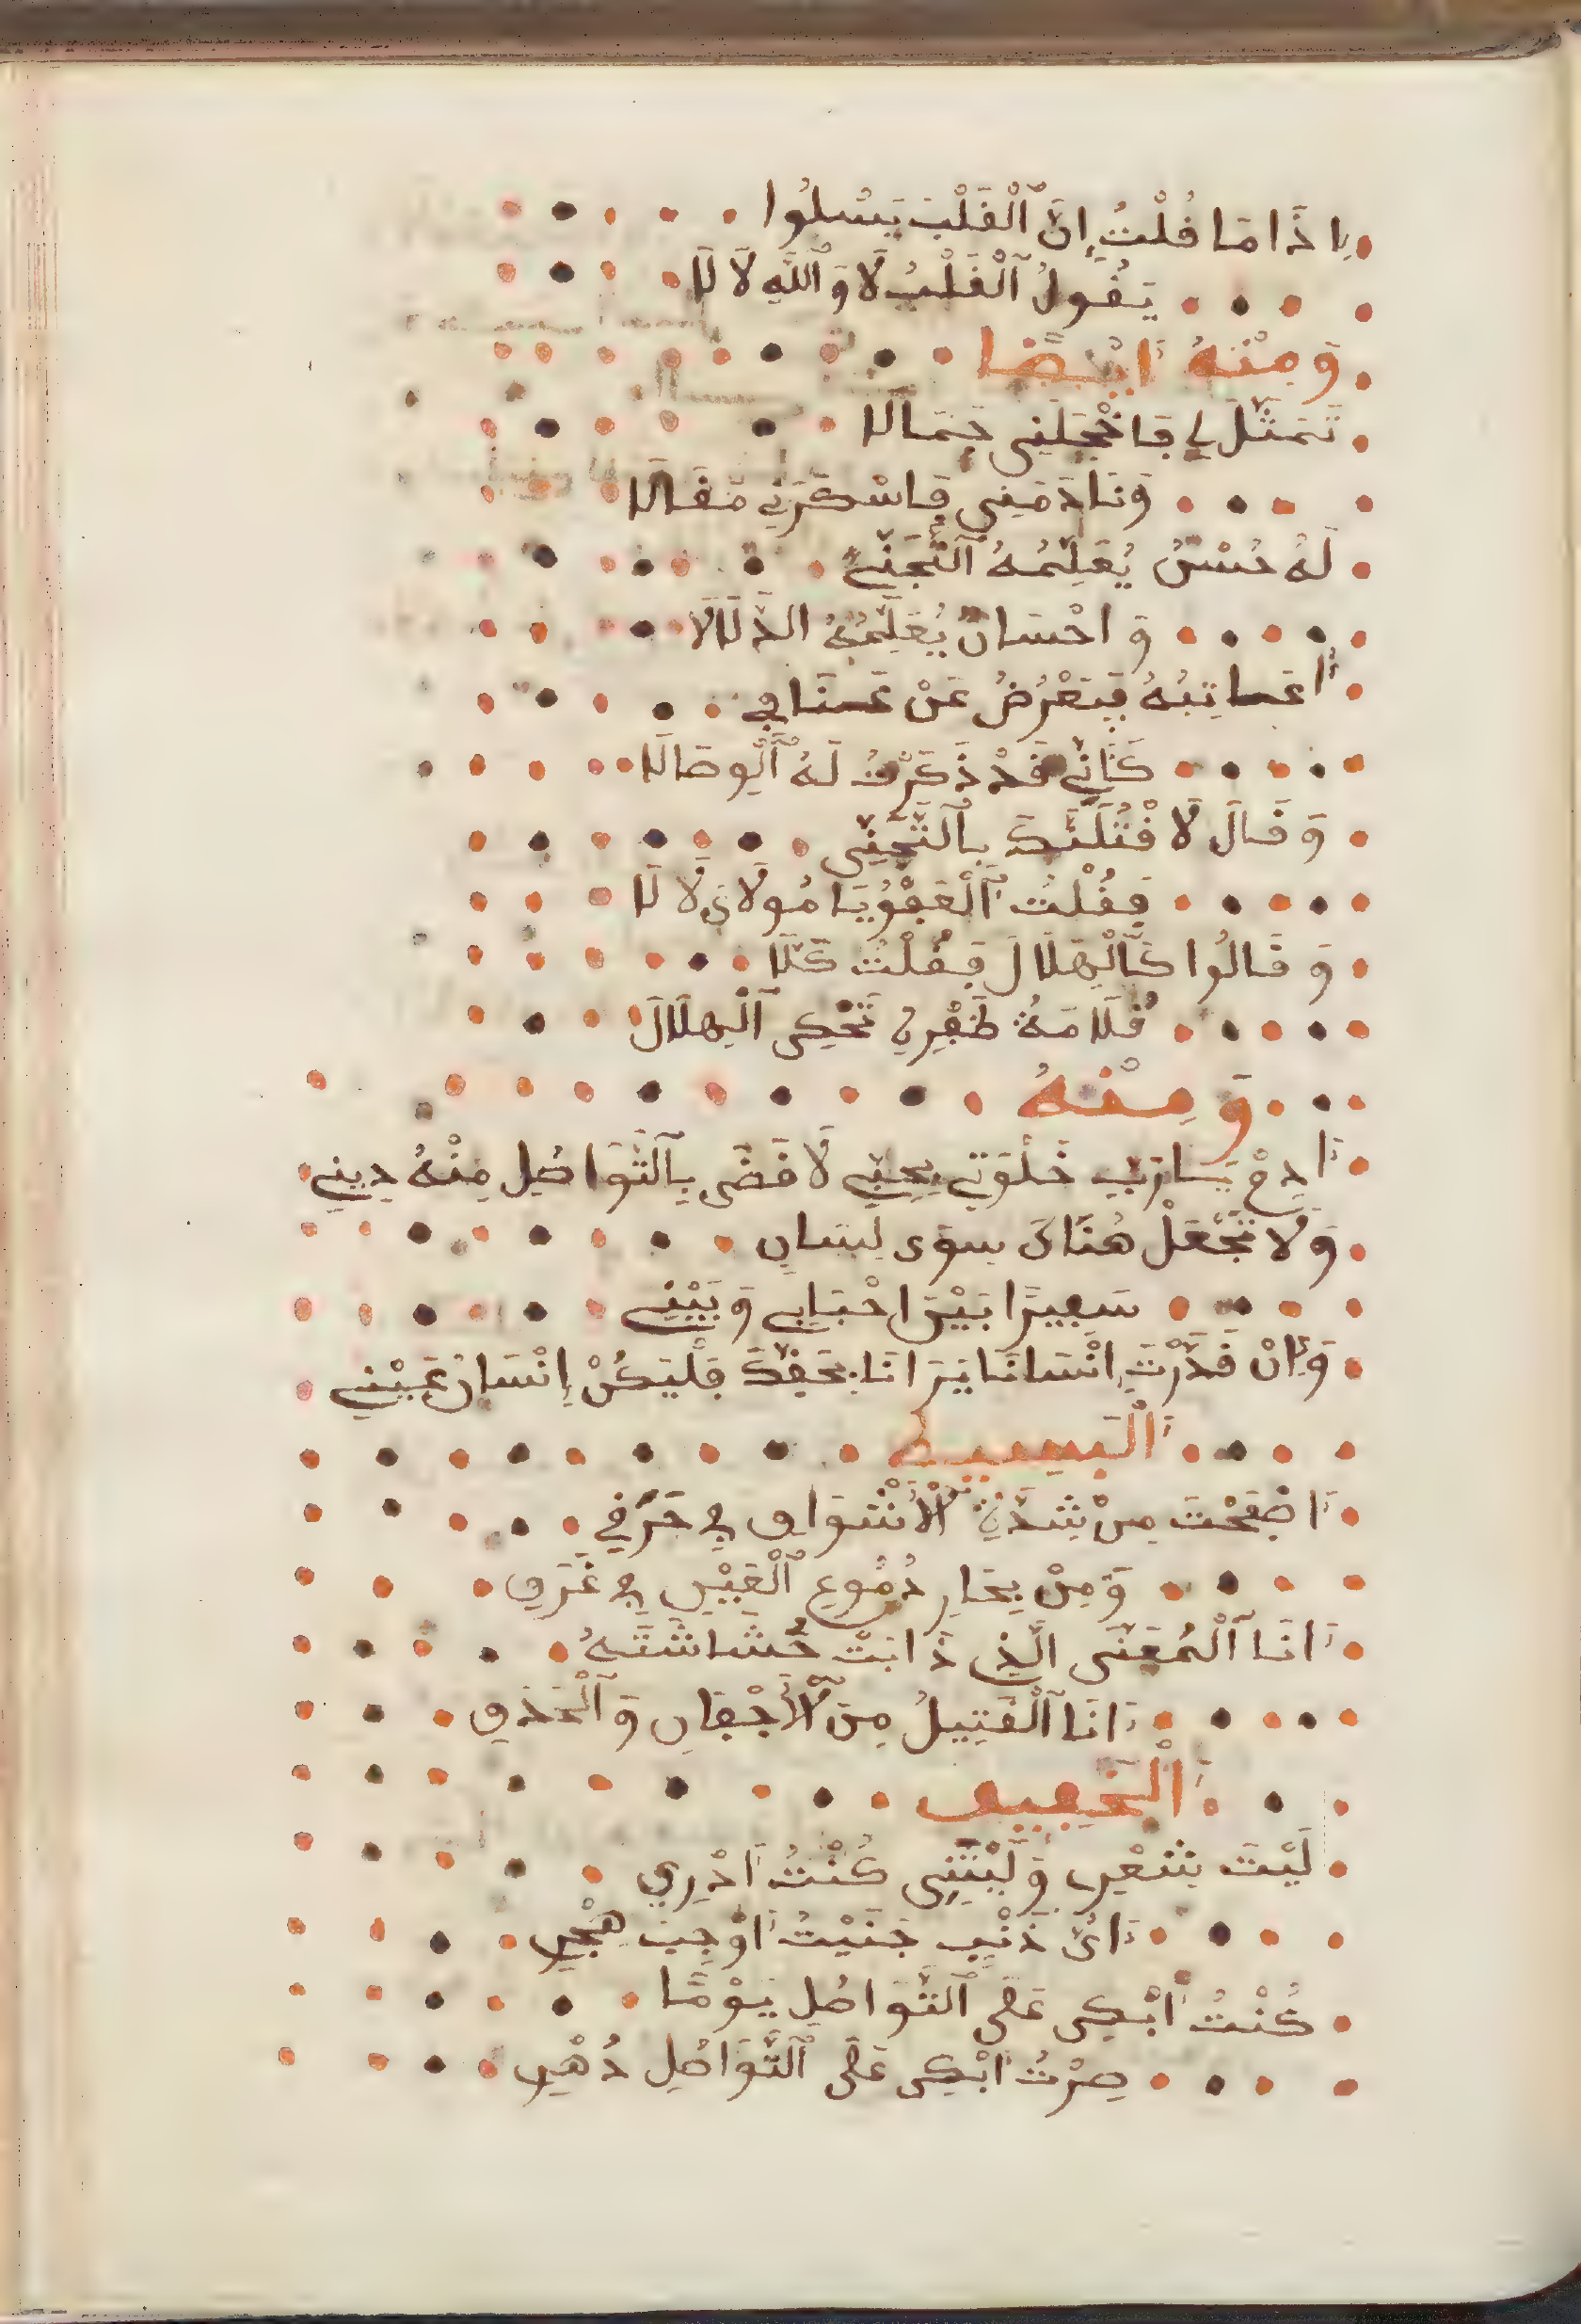 إِذَا مَا قُلْتُ إِنَّ ٱلْقَلْبَ يَسْلُوا
يَقُولُ ٱلْقَلْبُ لَا وَٱللَّهِ لَا لَا
وَمِنْهُ أَيْضًا
تَمَثَّلَ لِي فَاخْجَلَنِي جَمَالَا
وَنَادَمَنِي فَاسْكَرَنِي مَقَالَا
لَهُ حُسْنٌ يُعَلِّمُهُ ٱلتَّجَنِّي
وَاحْسَانٌ يُعَلِّمُهُ الدَّلَالَا
أُعَاتِبُهُ فَيَعْرُضُ عَنْ عِتَابِي
كَأَنِّي قَدْ ذَكَرْتُ لَهُ ٱلْوِصَالَا
وَقَالَ لَاقْتُلَنَّكَ بِٱلتَّجَنِّي
فَقُلْتُ ٱلْعَفْوُ يَا مُولَايَ لَا لَا
وَقَالُوا كَٱلْهِلَالِ فَقُلْتُ كَلَّا
قُلَامَةُ ظَفْرِهِ تَحْكِي ٱلْهِلَالَ
وَمِنْهُ
أَدِمْ يَا رَبِّ خَلْوَتِي بِحِبِّي لَاقْضَى بِٱلتَّوَاصُلِ مِنْهُ دِينِي
وَلَا تَجْعَلْ هُنَاكَ سِوَى لِسَانٍ
سَفِيرًا بَيْنَ احْبَابِي وَبَيْنِي
وَإِنْ قَدَّرْتَ إِنْسَانًا يَرَانَا بِحَقِّكَ فَلْيَكُنْ إِنْسَانُ عَيْنِي
ٱلْبَسِيطُ
أَضْحَتْ مِنْ شِدَّةِ ٱلْأَشْوَاقِ فِي حَرَقِي
وَمِنْ بِحَارِ دُمُوعِ ٱلْعَيْنِ فِي غَرَقِ
أَنَا ٱلْمُعَنَّى الَّذِي ذَابَتْ حُشَاشَتُهُ
أَنَا ٱلْقَتِيلُ مِنَ ٱلْأَجْفَانِ وَٱلْحَدَقِ
ٱلْخَفِيفُ
لَيْتَ شِعْرِي وَلَيْتَنِي كُنْتُ أَدْرِي
أَيُّ ذَنْبٍ جَنَيْتُ أَوْجَبَ هَجْرِي
كُنْتُ أَبْكِي عَلَى ٱلتَّوَاصُلِ يَوْمًا
صِرْتُ أَبْكِي عَلَى ٱلتَّوَاصُلِ دُهْرِي